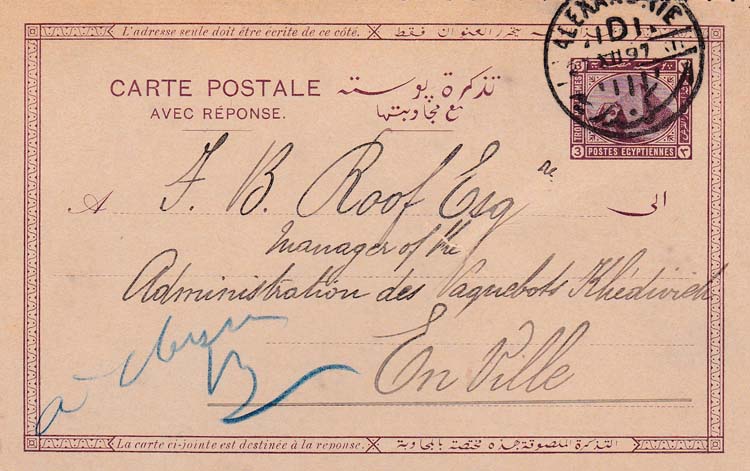 L'adresse seule doit être écrite de ce côté. يحرر العنوان فقط
ALEXANDRIE
XII 97
CARTE POSTALE تذكرة پوسته
AVEC RÉPONSE. مع مجاوبتها
TROIS MILLIEMES
3 POSTES EGYPTIENNES ٣
A J. B. Roof Esqre الى
Manager of the
Administration des Paquebots Khédivieh
En Ville
La carte ci-jointe est destinée à la réponse. التذكرة الملصوقة بهذه مختصة بالمجاوبة